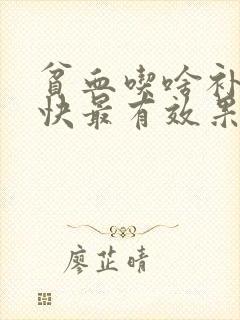 贫血喫啥补
快最有效果
廖芷晴